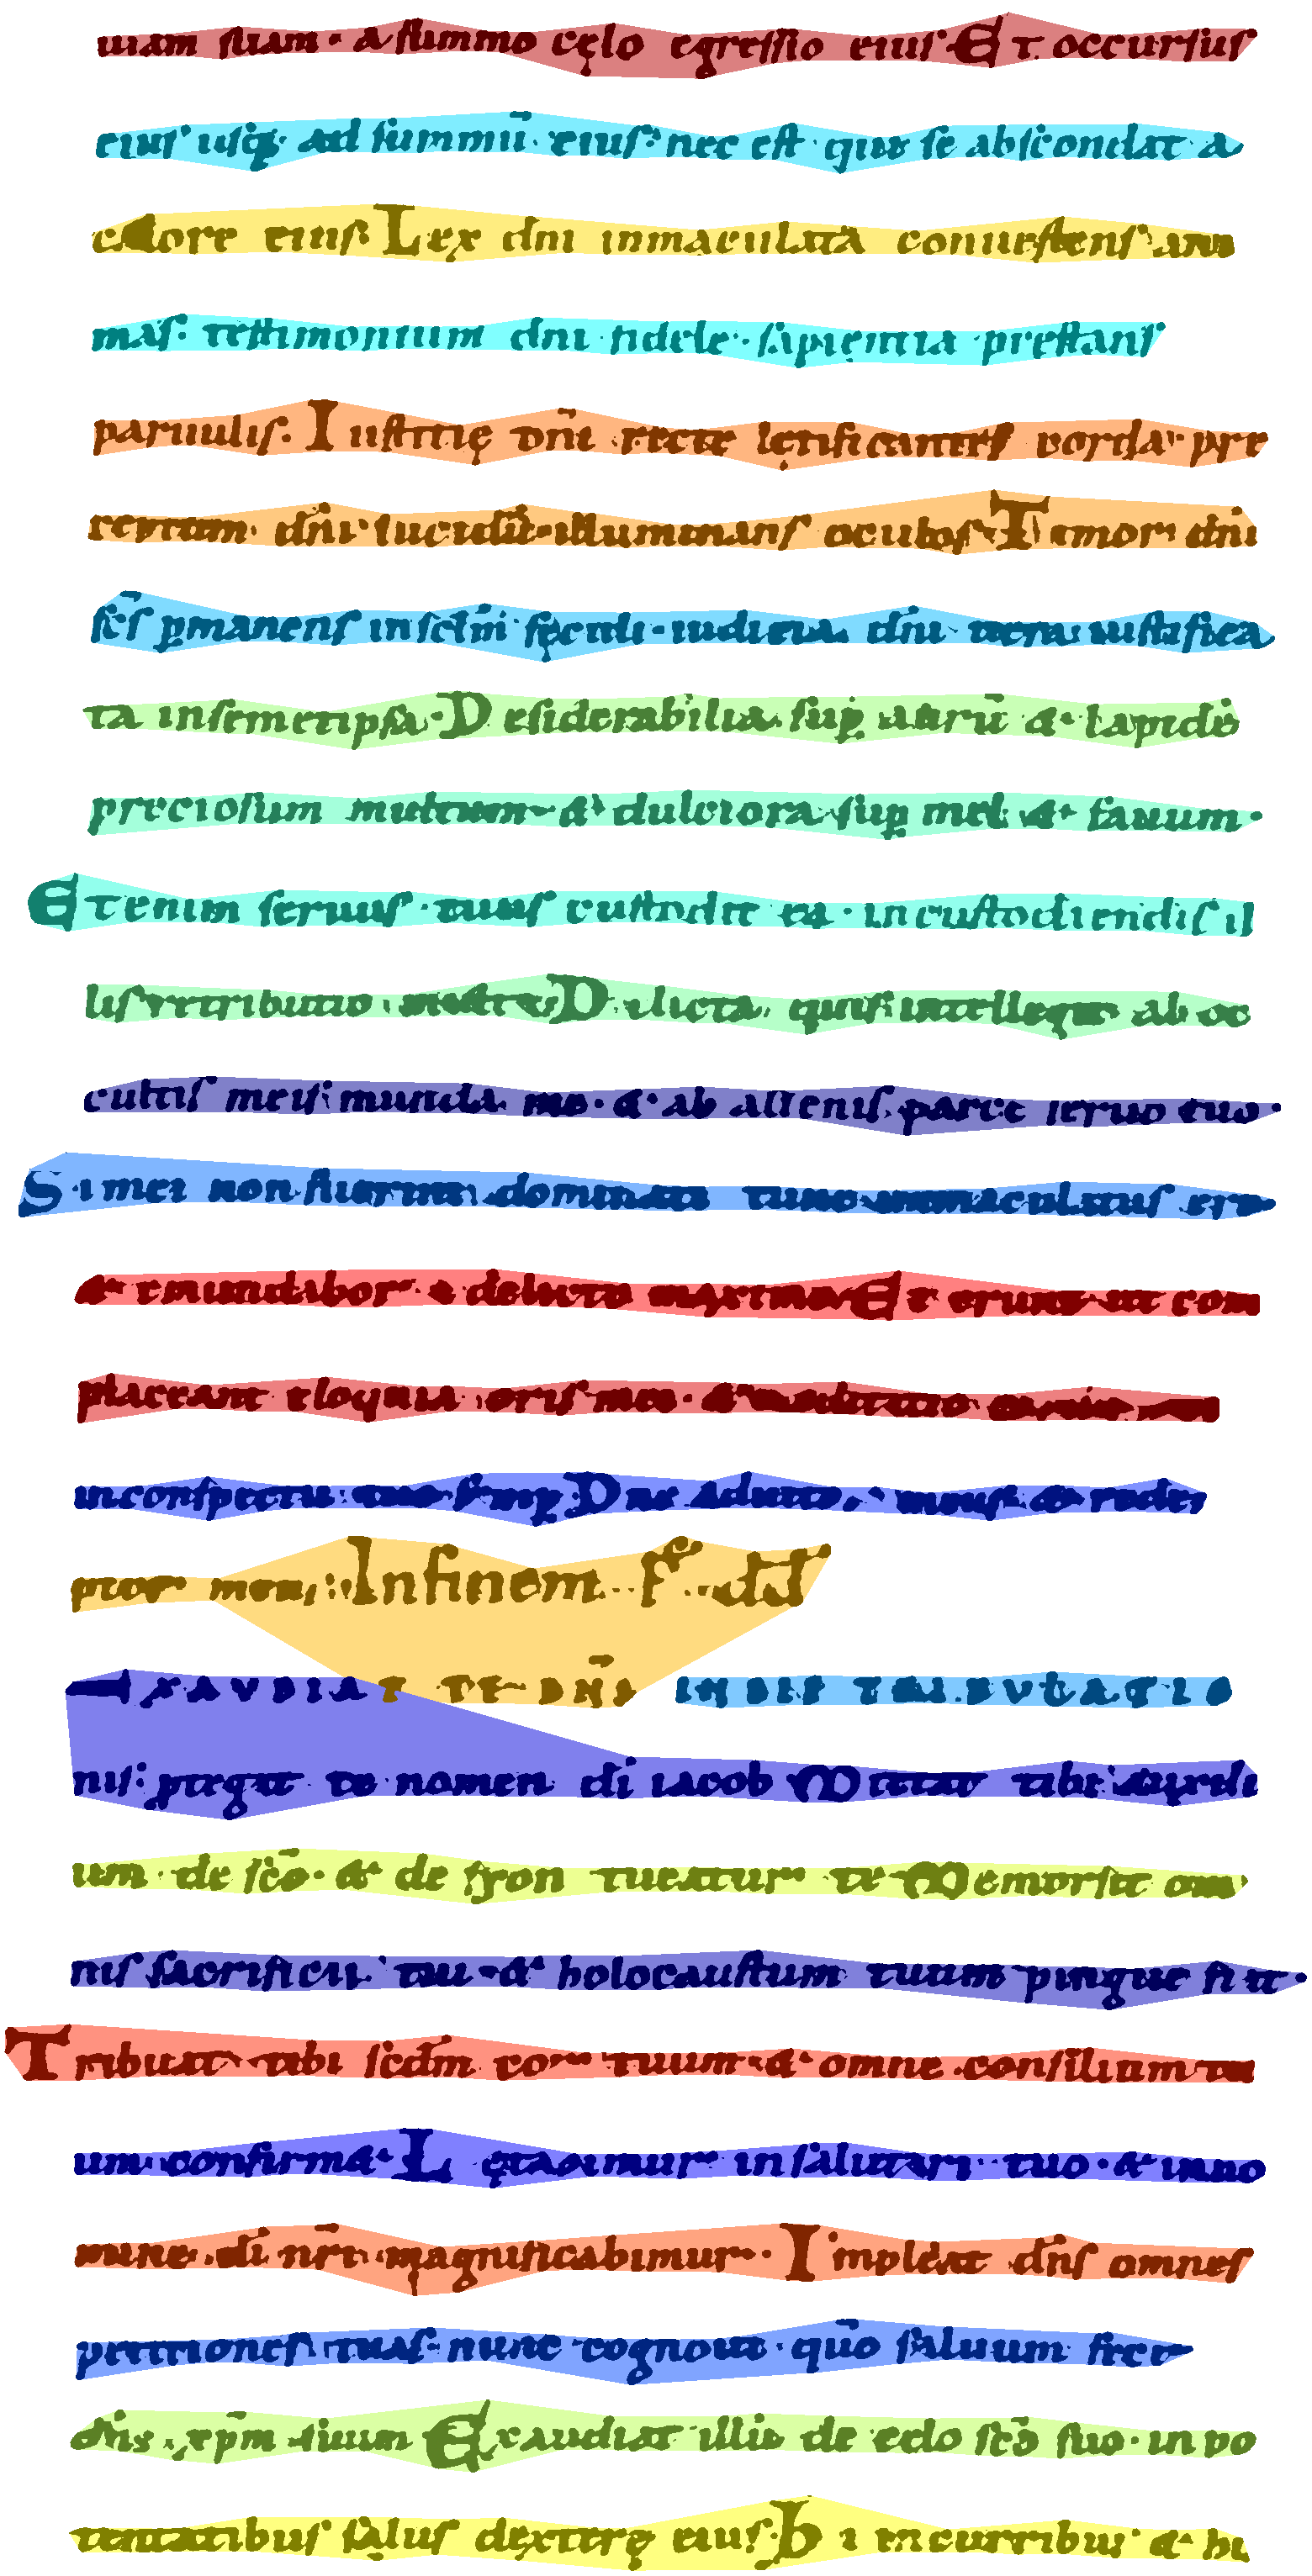 uiam suam · a summo cęlo egressio eius Et occursus
eius usq; ad summū eius · nec est qui se abscondat a
calore eius · Lex dni inmaculata conuertens ani
mas · testimonium dni fidele · sapientia prestans
paruulis · Iustitię dn̄i recte lętificantes corda · pre
ceptum dn̄i lucidū · illuminans oculos · Timor dn̄i
sc̄s ꝑmanens in sclm̄ sęculi · iudicia dn̄i uera iustifica
ta insemetipsa · Desiderabilia suꝑ aurū & lapidē
preciosum multum · & dulciora suꝑ mel & fauum ·
Etenim seruus · tuus custodit ea · in custodiendis il
lis retributio multa Delicta quis intellegit ab oc
cultis meis munda me · & ab alienis parce seruo tuo ·
Si mei non fuerint dominati tunc inmaculatus ero
& emundabor a delicto maximo Et erunt ut com
placeant eloquia oris mei · & meditatio cordis mei
in conspectu tuo semꝑ Dne adiutor meus & redem
ptor meus : Infinem · ps̄ · dd
EXAVDIAT TE DN̄S IN DIE TRIBVLATIO
nis : protegat te nomen di iacob Mittat tibi auxili
um · de sc̄o · & de syon tueatur te Memor sit om
nis sacrificii tui · & holocaustum tuum pingue fiat ·
Tribuat tibi scdm̄ cor tuum & omne consilium tu
um confirm& Lętabimur in salutari tuo · & inno
mine di nr̄i magnificabimur · Impleat dn̄s omnes
petitiones tuas · nunc cognoui · qūo saluum fecit
dn̄s xp̄m suum Exaudiat illū de celo sc̄o suo · in po
tentatibus salus dexterę eius · hi in curribus & hi